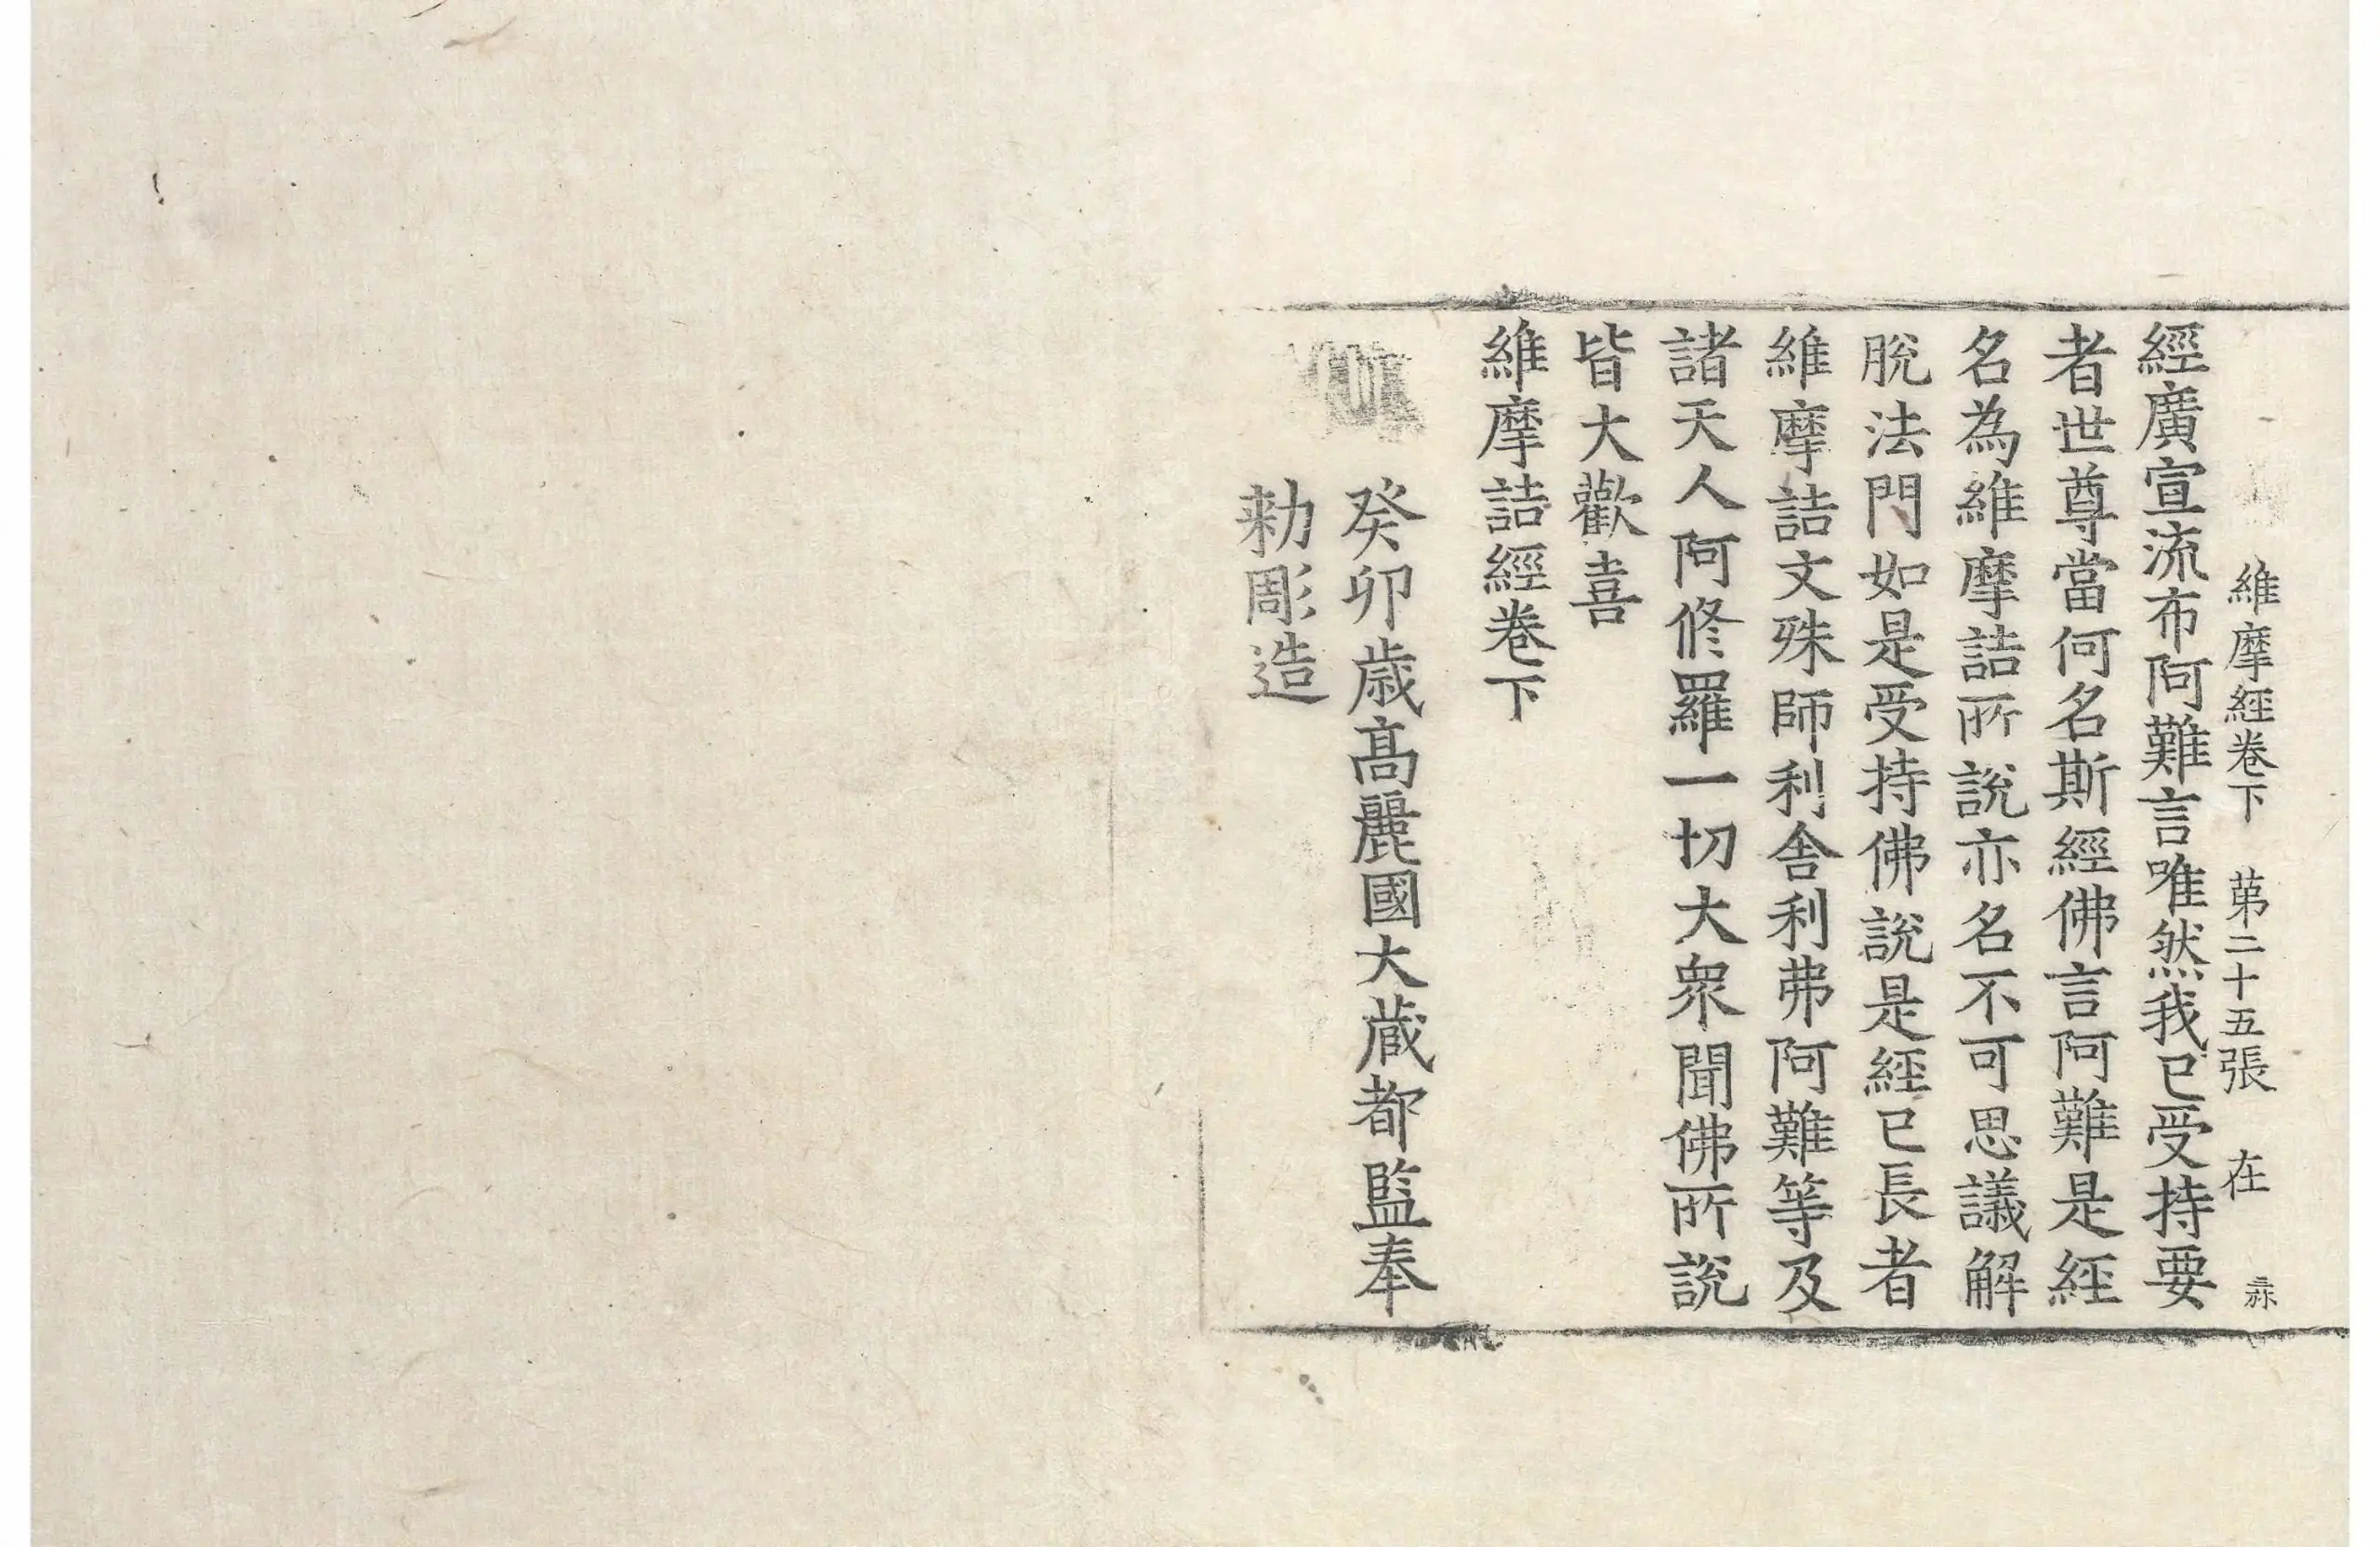 維摩經卷下 第二十五張 在
經廣宣流布阿難言唯然我已受持要
者世尊當何名斯經佛言阿難是經
名為維摩詰所說亦名不可思議解
脫法門如是受持佛說是經已長者
維摩詰文殊師利舍利弗阿難等及
諸天人阿修羅一切大衆聞佛所說
皆大歡喜
維摩詰經卷下
癸卯歲高麗國大藏都監奉
勅彫造